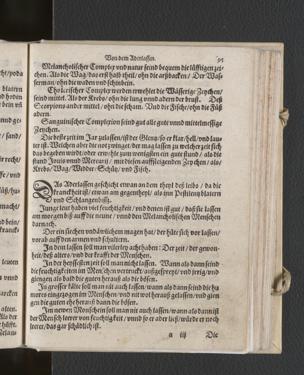 Von dem Aderlassen. 95
Melancholischer Complex vnd natur seind bequem die lüfftigen zei-
chen. Als die Wag/das erst halb theil/ohn die arßbacken/ Der Was-
serman/ohn die waden vnd schinbein.
Cholerischer Complex werden erwehlet die Wässerige Zeychen/
seind mittel. Als der Krebs/ ohn die lung vnnd adern der brust. Deß
Scorpions ander mittel/ohn die scham. Vnd die Fisch/ohn die Füß
adern.
Sanguinischer Complexion seind gut alle gute vnnd mittelmessige
Zeychen.
Die beste zeit im Jar zulassen/ist der Glentz/so er klar/hell/vnd lau-
ter ist. Welchen aber die not zwinget/der mag lassen zu welcher zeit sich
das begeben wirdt/oder erwehle zum wenigsten ein gute stund/ als die
stund Jouis vnnd Mercurij/ mit diesen auffsteigenden Zeychen/ als/
Krebs/Wag/Widder/Schütz/vnd Fisch.
DAs Aderlassen geschicht etwan an dem theyl des leibs / da die
kranckheit ist/etwan am gegentheyl/ als im Pestilentz blatern
vnd Schlangenbiß.
Junge leut haben viel feuchtigkeit/vnd denen ist gut/daß sie lassen
am morgen biß auff die neune/ vnnd den Melancholischen Menschen
darnach.
Der ein siechen vnd äwischen magen hat/der hüte sich vor lassen/
vorab auff den armen vnd schultern.
In dem lassen soll man viererley acht haben: Der zeit/ der gewon-
heit/deß alters/vnd der krafft.
In der heyssesten zeit soll man nicht lassen. Wann als dann seind
die feuchtigkeiten im Menschen verruckt/außgespreyt/vnd irrig/vnd
giengen als bald die guten herauß als die bösen.
In grosser kälte soll man nit auch lassen/wann als dann seind die hu-
mores eingezogen im Menschen/vnd nit wol herauß gelassen/vnd gien-
gen die guten ehe herauß dann die bösen.
Im newen Monschein soll man nit auch lassen/wann als dann ist der
Mensch leerer von feuchtigkeit / vnnd so er aber ließ/würde er noch
leerer/das gar schädlich ist.
n iij Die